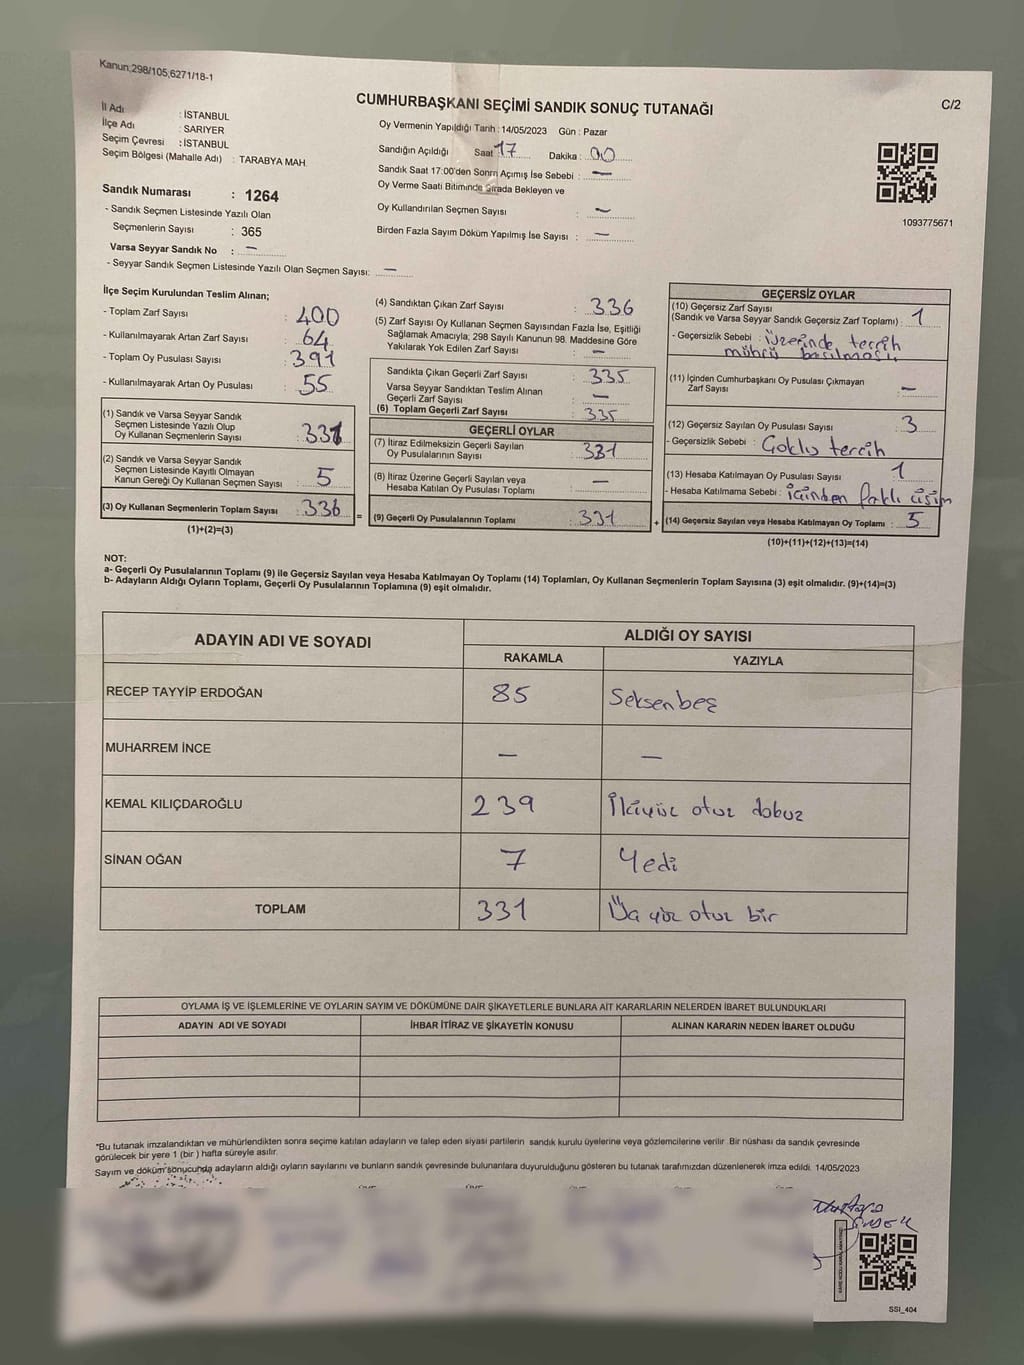 Kanun;298/105;6271/18-1
C/2
CUMHURBAŞKANI SEÇİMİ SANDIK SONUÇ TUTANAĞI
İl Adı : İSTANBUL
İlçe Adı : SARIYER
Seçim Çevresi : İSTANBUL
Seçim Bölgesi (Mahalle Adı) : TARABYA MAH.
Sandık Numarası : 1264
- Sandık Seçmen Listesinde Yazılı Olan
Seçmenlerin Sayısı : 365
Varsa Seyyar Sandık No : —
- Seyyar Sandık Seçmen Listesinde Yazılı Olan Seçmen Sayısı: —
Oy Vermenin Yapıldığı Tarih : 14/05/2023 Gün : Pazar
Sandığın Açıldığı Saat 17 Dakika : 00
Sandık Saat 17:00'den Sonra Açımış İse Sebebi : —
Oy Verme Saati Bitiminde Sırada Bekleyen ve
Oy Kullandırılan Seçmen Sayısı : —
Birden Fazla Sayım Döküm Yapılmış İse Sayısı : —
1093775671
İlçe Seçim Kurulundan Teslim Alınan;
- Toplam Zarf Sayısı : 400
- Kullanılmayarak Artan Zarf Sayısı : 64
- Toplam Oy Pusulası Sayısı : 391
- Kullanılmayarak Artan Oy Pusulası : 55
(1) Sandık ve Varsa Seyyar Sandık
Seçmen Listesinde Yazılı Olup
Oy Kullanan Seçmenlerin Sayısı : 331
(2) Sandık ve Varsa Seyyar Sandık
Seçmen Listesinde Kayıtlı Olmayan
Kanun Gereği Oy Kullanan Seçmen Sayısı : 5
(3) Oy Kullanan Seçmenlerin Toplam Sayısı : 336
(1)+(2)=(3)
(4) Sandıktan Çıkan Zarf Sayısı : 336
(5) Zarf Sayısı Oy Kullanan Seçmen Sayısından Fazla İse, Eşitliği
Sağlamak Amacıyla; 298 Sayılı Kanunun 98. Maddesine Göre
Yakılarak Yok Edilen Zarf Sayısı : —
Sandıkta Çıkan Geçerli Zarf Sayısı : 335
Varsa Seyyar Sandıktan Teslim Alınan
Geçerli Zarf Sayısı : —
(6) Toplam Geçerli Zarf Sayısı : 335
GEÇERLİ OYLAR
(7) İtiraz Edilmeksizin Geçerli Sayılan
Oy Pusulalarının Sayısı : 331
(8) İtiraz Üzerine Geçerli Sayılan veya
Hesaba Katılan Oy Pusulası Toplamı : —
= (9) Geçerli Oy Pusulalarının Toplamı : 331 +
GEÇERSİZ OYLAR
(10) Geçersiz Zarf Sayısı
(Sandık ve Varsa Seyyar Sandık Geçersiz Zarf Toplamı) : 1
- Geçersizlik Sebebi : Üzerinde tercih
mührü basılması
(11) İçinden Cumhurbaşkanı Oy Pusulası Çıkmayan
Zarf Sayısı : —
(12) Geçersiz Sayılan Oy Pusulası Sayısı : 3
- Geçersizlik Sebebi : Çoklu tercih
(13) Hesaba Katılmayan Oy Pusulası Sayısı : 1
- Hesaba Katılmama Sebebi : içinden faklı cisim
(14) Geçersiz Sayılan veya Hesaba Katılmayan Oy Toplamı : 5
(10)+(11)+(12)+(13)=(14)
NOT:
a- Geçerli Oy Pusulalarının Toplamı (9) ile Geçersiz Sayılan veya Hesaba Katılmayan Oy Toplamı (14) Toplamları, Oy Kullanan Seçmenlerin Toplam Sayısına (3) eşit olmalıdır. (9)+(14)=(3)
b- Adayların Aldığı Oyların Toplamı, Geçerli Oy Pusulalarının Toplamına (9) eşit olmalıdır.
ADAYIN ADI VE SOYADI ALDIĞI OY SAYISI
RAKAMLA YAZIYLA
RECEP TAYYİP ERDOĞAN 85 Seksenbeş
MUHARREM İNCE — —
KEMAL KILIÇDAROĞLU 239 İkiyüz otuz dokuz
SİNAN OĞAN 7 Yedi
TOPLAM 331 Üç yüz otuz bir
OYLAMA İŞ VE İŞLEMLERİNE VE OYLARIN SAYIM VE DÖKÜMÜNE DAİR ŞİKAYETLERLE BUNLARA AİT KARARLARIN NELERDEN İBARET BULUNDUKLARI
ADAYIN ADI VE SOYADI İHBAR İTİRAZ VE ŞİKAYETİN KONUSU ALINAN KARARIN NEDEN İBARET OLDUĞU
*Bu tutanak imzalandıktan ve mühürlendikten sonra seçime katılan adayların ve talep eden siyasi partilerin sandık kurulu üyelerine veya gözlemcilerine verilir. Bir nüshası da sandık çevresinde
görülecek bir yere 1 (bir ) hafta süreyle asılır.
Sayım ve döküm sonucunda adayların aldığı oyların sayılarını ve bunların sandık çevresinde bulunanlara duyurulduğunu gösteren bu tutanak tarafımızdan düzenlenerek imza edildi. 14/05/2023
SSI_404